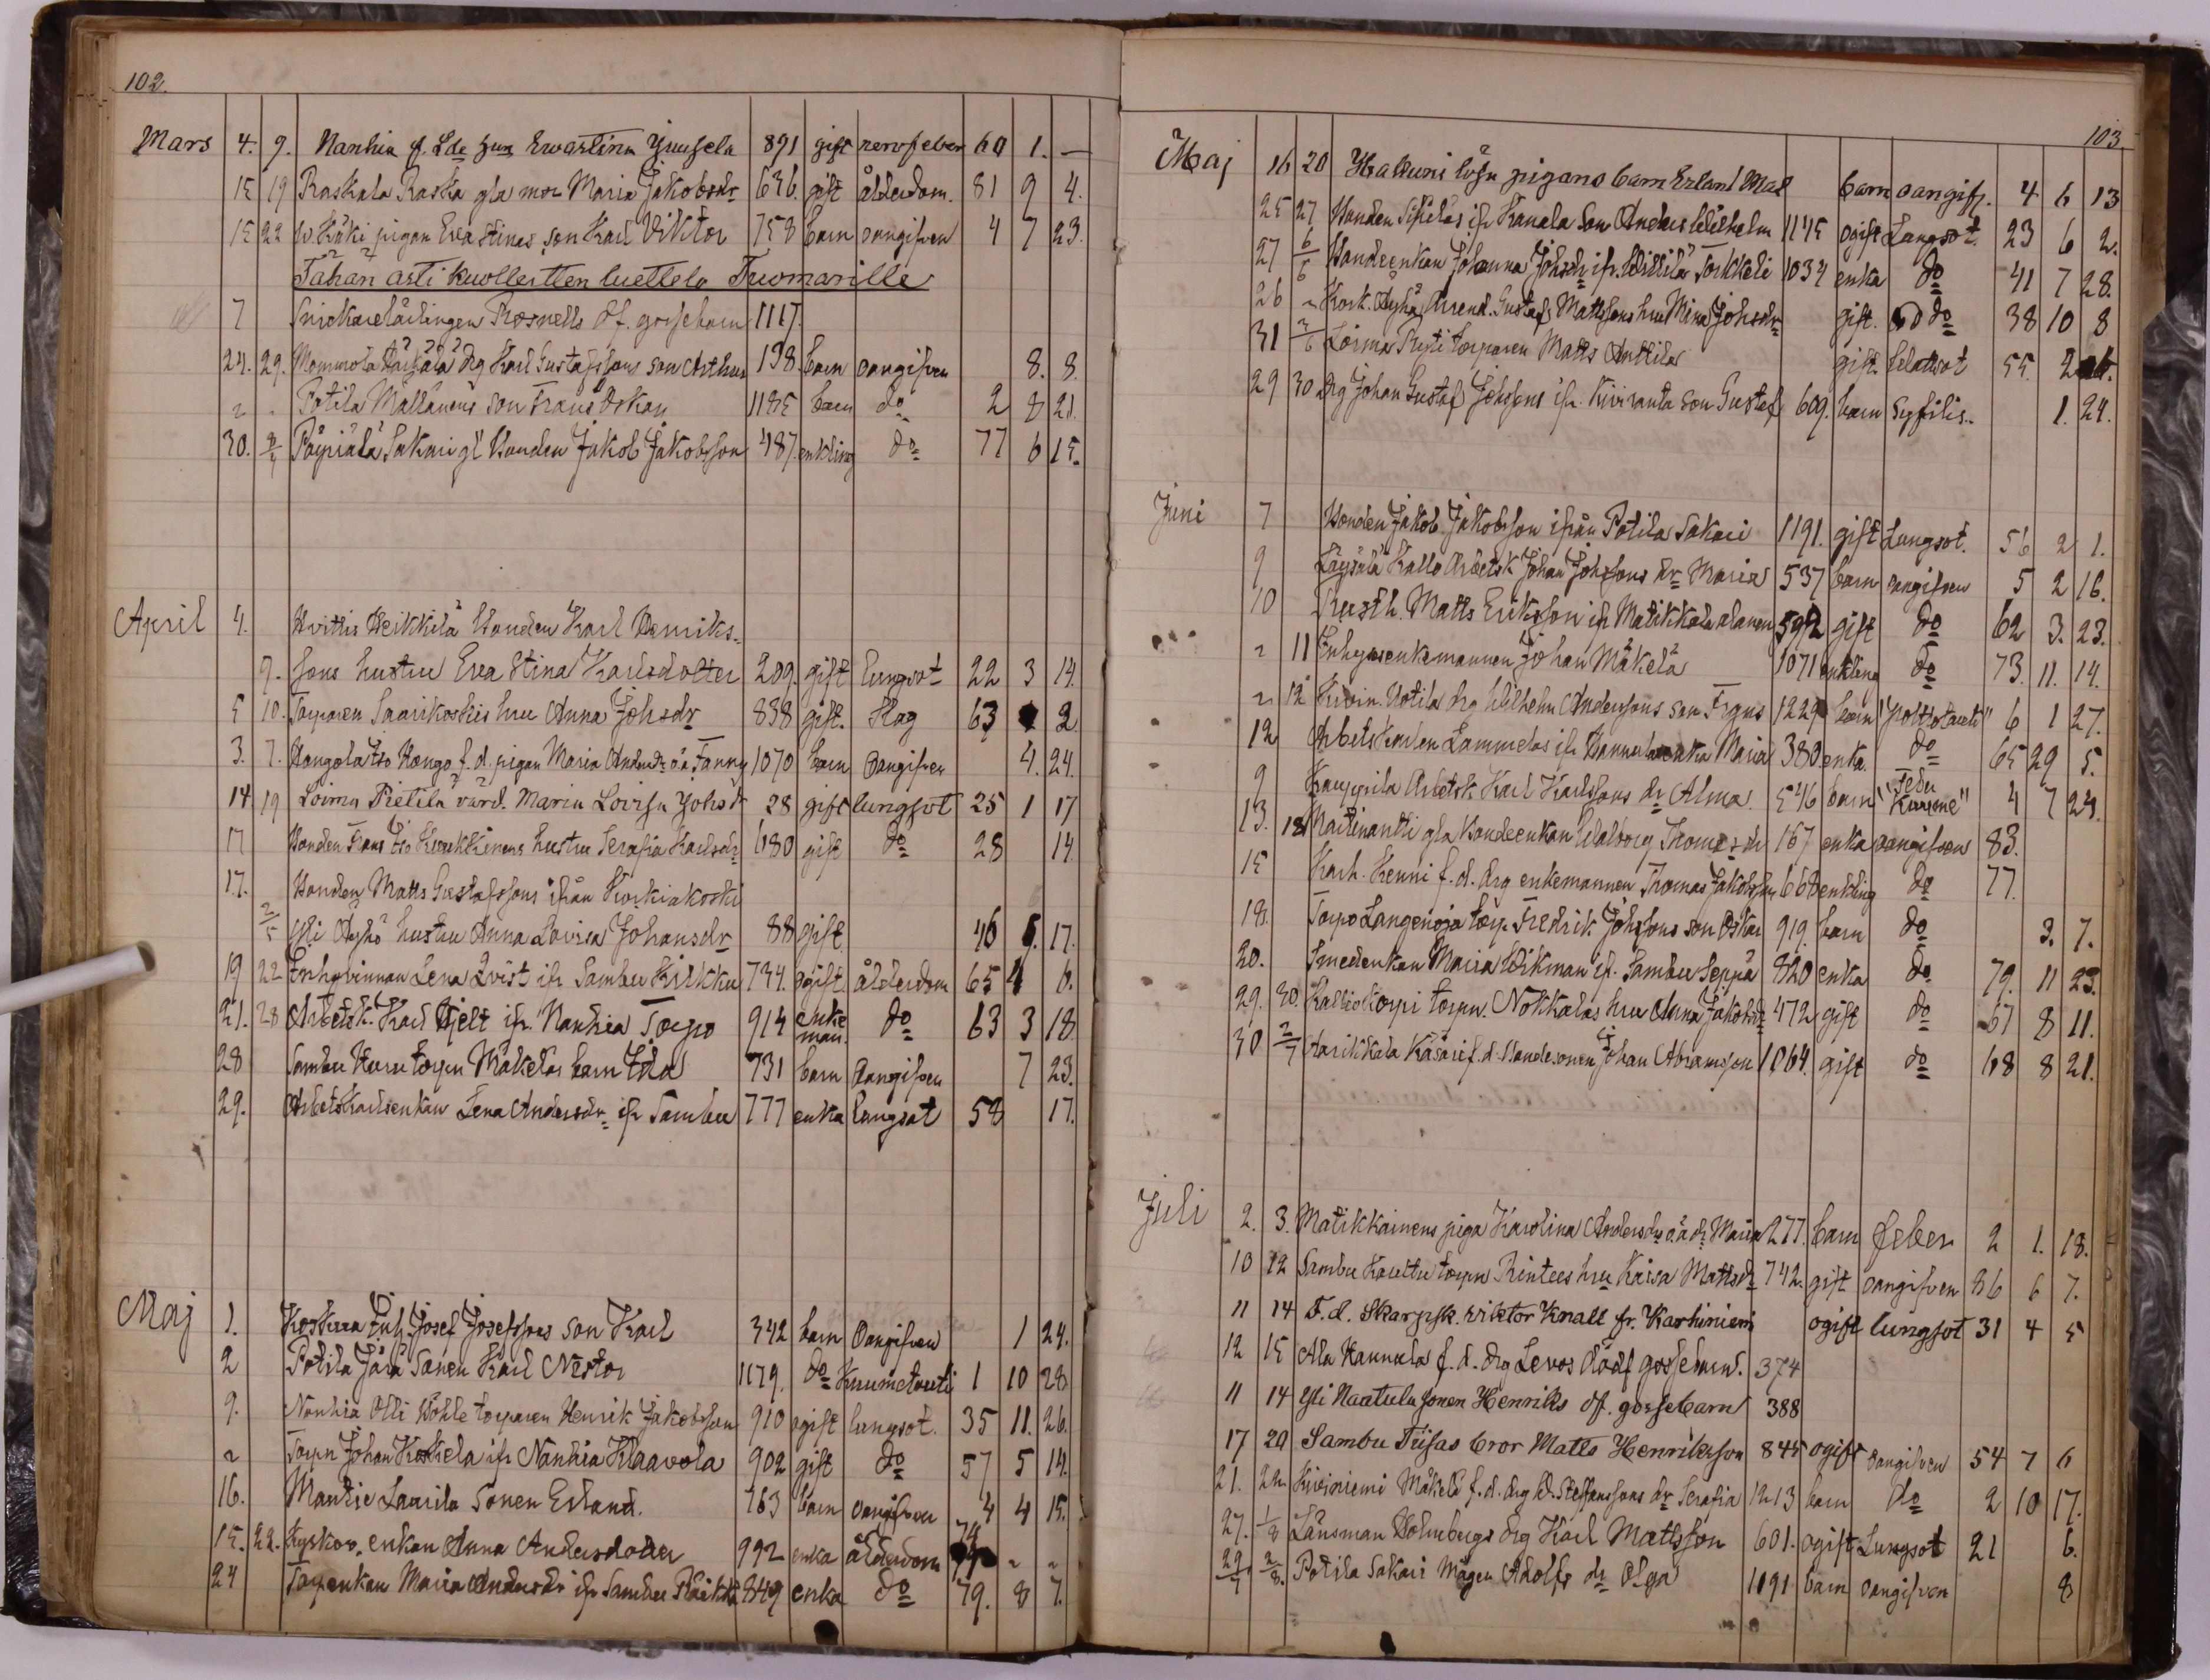 102.
Mars 4. 9. Nanhia f. Lde hm Ewastina Yuusela 891 gift nervfeber 60 1. —
15 19 Raskala Raska gla mor Maria Jakobsdr 636. gift ålderdom. 81 9 4.
15 22 W. Käki pigan Eva Stinas son Karl Viktor 758 barn oangifven 4 7 23.
Tähän asti kuolleitten luettelo Tuomarille
7 Snickarelärlingen Rosnells df. gossebarn 1117.
24. 29. Mommola Äijälä drg Karl Gustafssons son Arthur 198. barn oangifven 8. 8.
" " Potila Mällänens son Frans Oskar 1185 barn do 2 8 21.
30. 2/4 Päpiälä Sakari gl Bonden Jakob Jakobsson 487. enkling do 77 6 15.
April 4. Hvittis Heikkilä Bonden Karl Henriks-
9. sons hustru Eva Stina Karlsdotter 209. gift lungsot 22 3 14.
5 10. Torparen Saarikoskis hru Anna Johsdr 838 gift. Slag 63 2
3. 7. Hongola Iso Hongo f. d. pigan Maria Andersdr o.ä. Fanny 1070 barn Oangifven 4. 24.
14 19 Loima Pietilä värd. Maria Lovisa Johsdr 28 gift lungsot 25 1 17
17 Bonden Frans Iso Kurkkinens hustru Serafia Karlsdr 680 gift do 28 14.
17. Bonden Matts Gustafssons ifrån Korkiakoski
2/5 Yli Äijhö hustru Anna Lovisa Johansdr 88 gift 46 6. 17.
19 22 Inhqvinnan Lena Qvist ifr Sambu Kilkku 734. ogift. ålderdom 65 4 6.
21. 28 Arbetsk. Karl Hjelt ifr. Nanhia Torpo 914 enke man. do 63 3 18
28 Sambu Kuru torpn Mäkelas barn Ida 731 barn Oangifven 7 23.
29. Arbetskarlsenkan Lena Andersdr ifr Sambu 777 enka lungsot 58 17.
Maj 1. Koskua Inh. Josef Josefssons son Karl 342 barn Oangifven 1 24.
2 Potila Järä Sonen Karl Nestor 1179. do Kuumetauti 1 10 28
9. Nanhia Olli Wohle torparen Henrik Jakobsson 910 ogift lungsot. 35 11. 26.
" Torpn Johan Koskela ifr Nanhia Klaavola 902 gift do 57 5 14.
16. Mantie Laurila Sonen Erland. 763 barn oangifven 4 4 15.
15. 22. Kyrkov. enkan Anna Andersdotter 992 enka ålderdom 74 " "
24 Torpenkan Maria Andersdr ifr Sambu Räikkä 849 enka do 79. 8 7.
103
Maj 16 20 Halkuni lösa pigans barn Erland Mas barn oangifv. 4 6 13
25 27 Bonden Sikiläs ifr Kanala Son Anders Wilhelm 1145 ogift Lungsot. 23 6 2.
27 6/6 Bondeenkan Johanna Johsdr ifr. Wittilä Torkkeli 1034 enka do 41 7 28.
26 " Kork. Äijhö Arrend. Gustaf Mattssons hru Mina Johsdr gift. do 38 10 8
31 3/6 Loima Ryti torparen Matts Anttila gift. Slattsot 55. 2
29 30. drg Johan Gustaf Johssons ifr. Kiviranta son Gustaf 609. barn Syfilis. 1. 24.
Juni 7 Bonden Jakob Jakobsson ifrån Potila Sakari 1191. gift Lungsot. 56 2 1.
9 Löysälä Kallo Arbetsk Johan Johssons dr Maria 537 barn oangifven 5 2 16.
10 Rusth. Matts Eriksson ifr Matikkala alanen 592 gift do 62 3. 23.
" 11 Inhysenkemannen Johan Mäkelä 1071 enkling do 73. 11. 14.
" 12 Kivin. Uotila drg Wilhelm Anderssons son Frans 1229 barn "polttotauti" 6 1 27.
12 Arbetskarlen Lammelas ifr Hannula enka Maria 380 enka. do 65 29 5.
9 Kauppila Arbetsk Karl Karlssons dr Alma. 546 barn "Feber Kuume" 4 7 24.
13. 18 Martinantti gla Bondeenkan Walborg Thomasdr 167 enka oangifven 83.
15 Karh. Kenni f. d. drg enkemannen Thomas Jakobsson 668 enkling do 77.
18. Torpo Langenoja torp. Fredrik Johssons son Oskar 919. barn do 3. 7.
20. Smedenkan Maria Wikman ifr. Sambu Seppä 820 enka do 79. 11 23.
29. 30. Kalliokorpi torpn. Nokkalas hru Anna Jakobsdr 472 gift do 67 8 11.
30 2/7 Karikkala Käsäri f. d. Bondesonen Johan Abramsson 1064. gift do 68 8 21.
Juli 2. 3. Matikkainens piga Karolina Andersdr o.ä. dr Maria 277. barn feber 2 1. 18.
10 12 Sambu Kouttu torpn Rintees hru Kaisa Mattsdr 742. gift oangifven 86 6 7.
11 14 F. d. Skarpsk. Viktor Knall fr. Karhiniemi ogift lungsot 31 4 5
12 15 Ala Hannula f. d. drg Levos dödf gossebarn. 374
11 14 Yli Naatula sonen Henriks df. gossebarn 388
17 20 Sambu Tiisas bror Matts Henriksson 845 ogift oangifven 54 7 6
21. 22. Kiviniemi Mäkelä f. d. drg W. Steffanssons dr Serafia 1213 barn do 2 10 17.
27. 1/8 Länsman Holmbergs drg Karl Mattsson 601. ogift Lungsot 21 6.
29/7 2/8. Potila Sakari Mågen Adolfs dr Olga 1191 barn oangifven 8